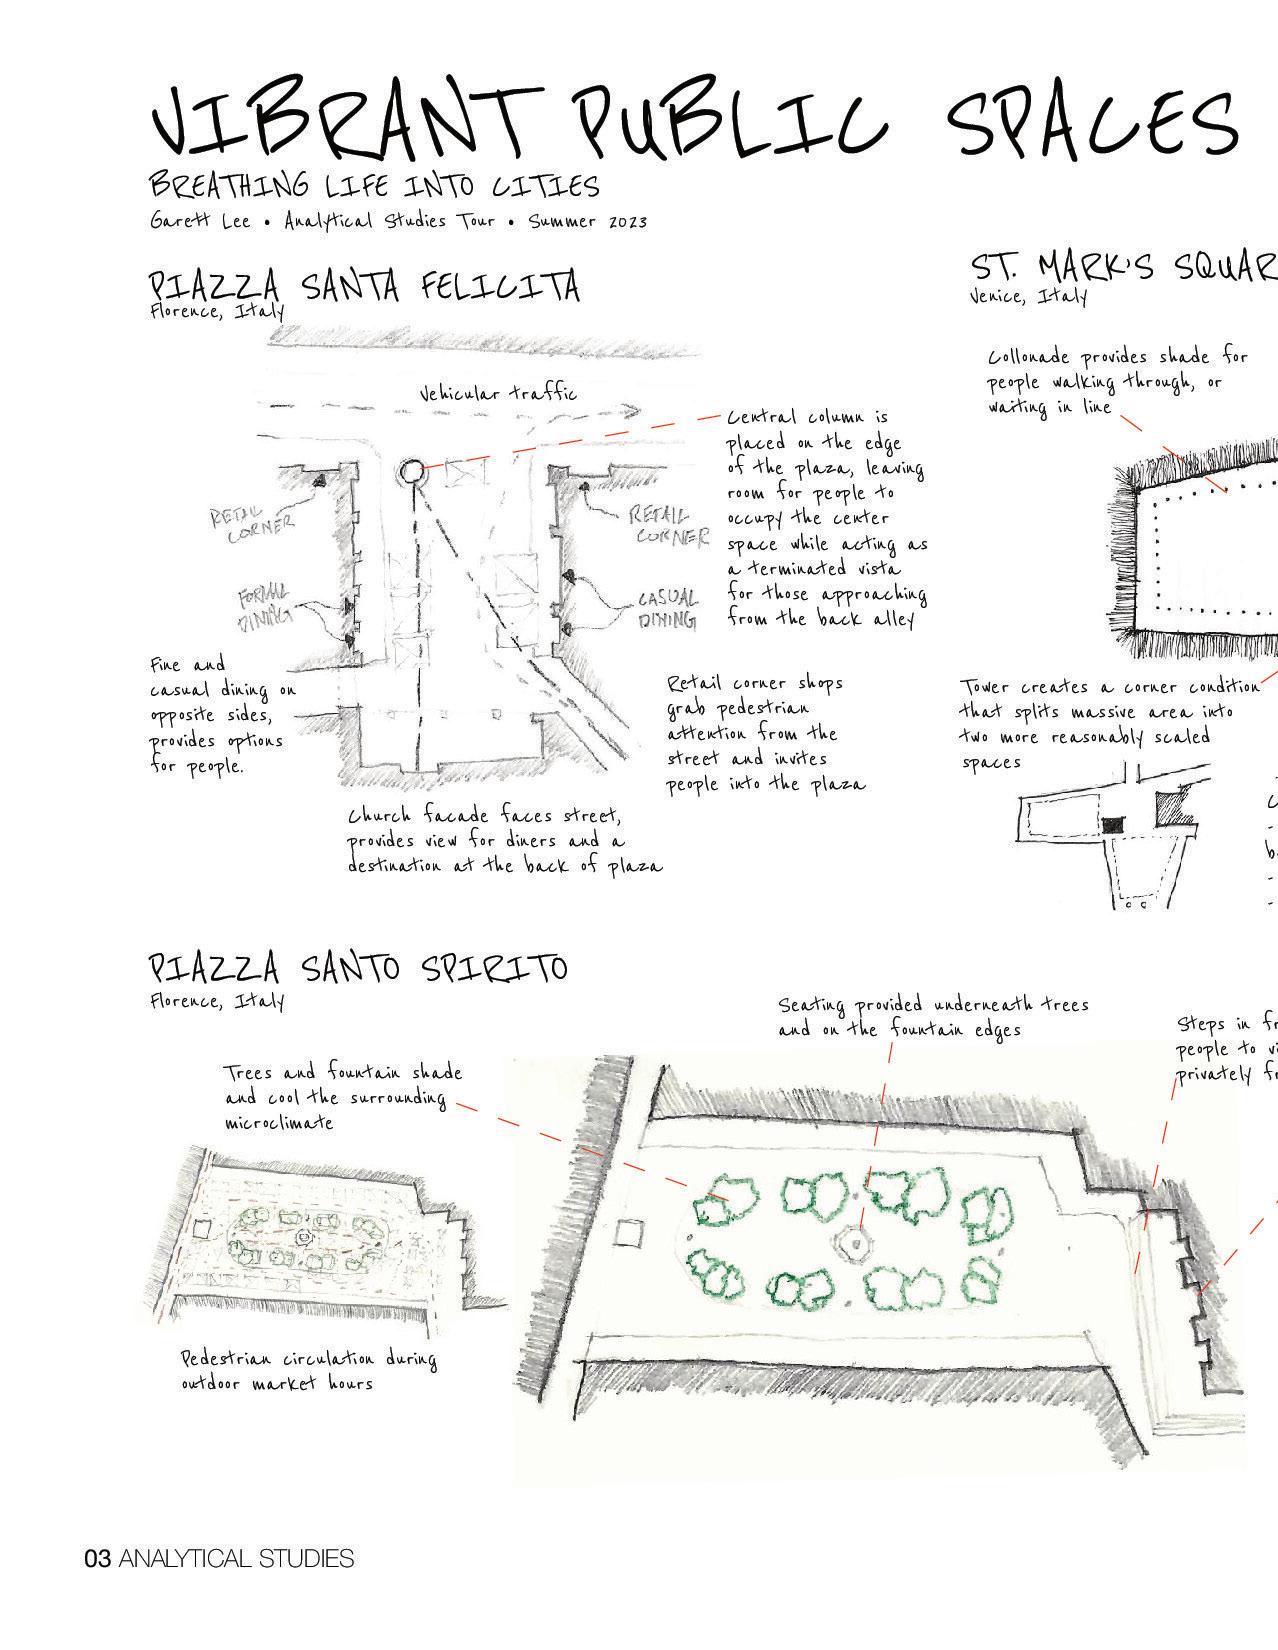 VIBRANT PUBLIC SPACES
BREATHING LIFE INTO CITIES
Garett Lee • Analytical Studies Tour • Summer 2023
PIAZZA SANTA FELICITA
Florence, Italy
Vehicular traffic
RETAIL
CORNER
FORMAL
DINING
RETAIL
CORNER
CASUAL
DINING
Central column is
placed on the edge
of the plaza, leaving
room for people to
occupy the center
space while acting as
a terminated vista
for those approaching
from the back alley
Fine and
casual dining on
opposite sides,
provides options
for people.
Retail corner shops
grab pedestrian
attention from the
street and invites
people into the plaza
Church facade faces street,
provides view for diners and a
destination at the back of plaza
ST. MARK'S SQUAR
Venice, Italy
Collonade provides shade for
people walking through, or
waiting in line
Tower creates a corner condition
that splits massive area into
two more reasonably scaled
spaces
PIAZZA SANTO SPIRITO
Florence, Italy
Trees and fountain shade
and cool the surrounding
microclimate
Seating provided underneath trees
and on the fountain edges
Steps in fr
people to vi
privately fr
Pedestrian circulation during
outdoor market hours
03 ANALYTICAL STUDIES